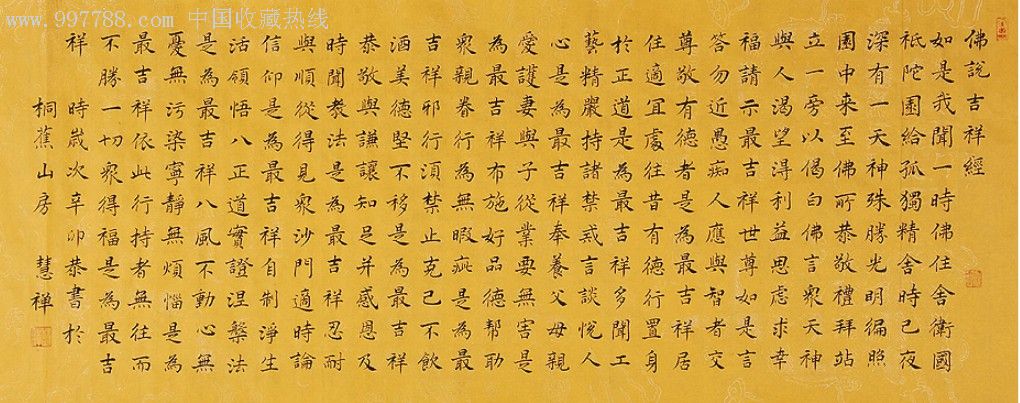 www.997788.com 中国收藏热线
佛說吉祥經
如是我聞一時佛住舍衛國
祇陀園給孤獨精舍時已夜
深有一天神殊勝光明徧照
園中来至佛所恭敬禮拜站
立一旁以偈白佛言衆天神
與人渴望得利益思虑求幸
福請示最吉祥世尊如是言
答勿近愚痴人應與智者交
尊敬有德者是為最吉祥居
住適宜處往昔有德行置身
於正道是為最吉祥多聞工
藝精嚴持諸禁戒言談悦人
心是為最吉祥奉養父母親
愛護妻與子從業要無害是
為最吉祥布施好品德幫助
衆親眷行為無瑕疵是為最
吉祥邪行須禁止克己不飲
酒美德堅不移是為最吉祥
恭敬與謙讓知足并感恩及
時聞教法是為最吉祥忍耐
與順從得見衆沙門適時論
信仰是為最吉祥自制淨生
活領悟八正道實證涅槃法
是為最吉祥八風不動心無
憂無污染寧靜無煩惱是為
最吉祥依此行持者無往而
不勝一切衆得福是為最吉
祥 時歲次辛卯恭書於
桐蕉山房 慧禪